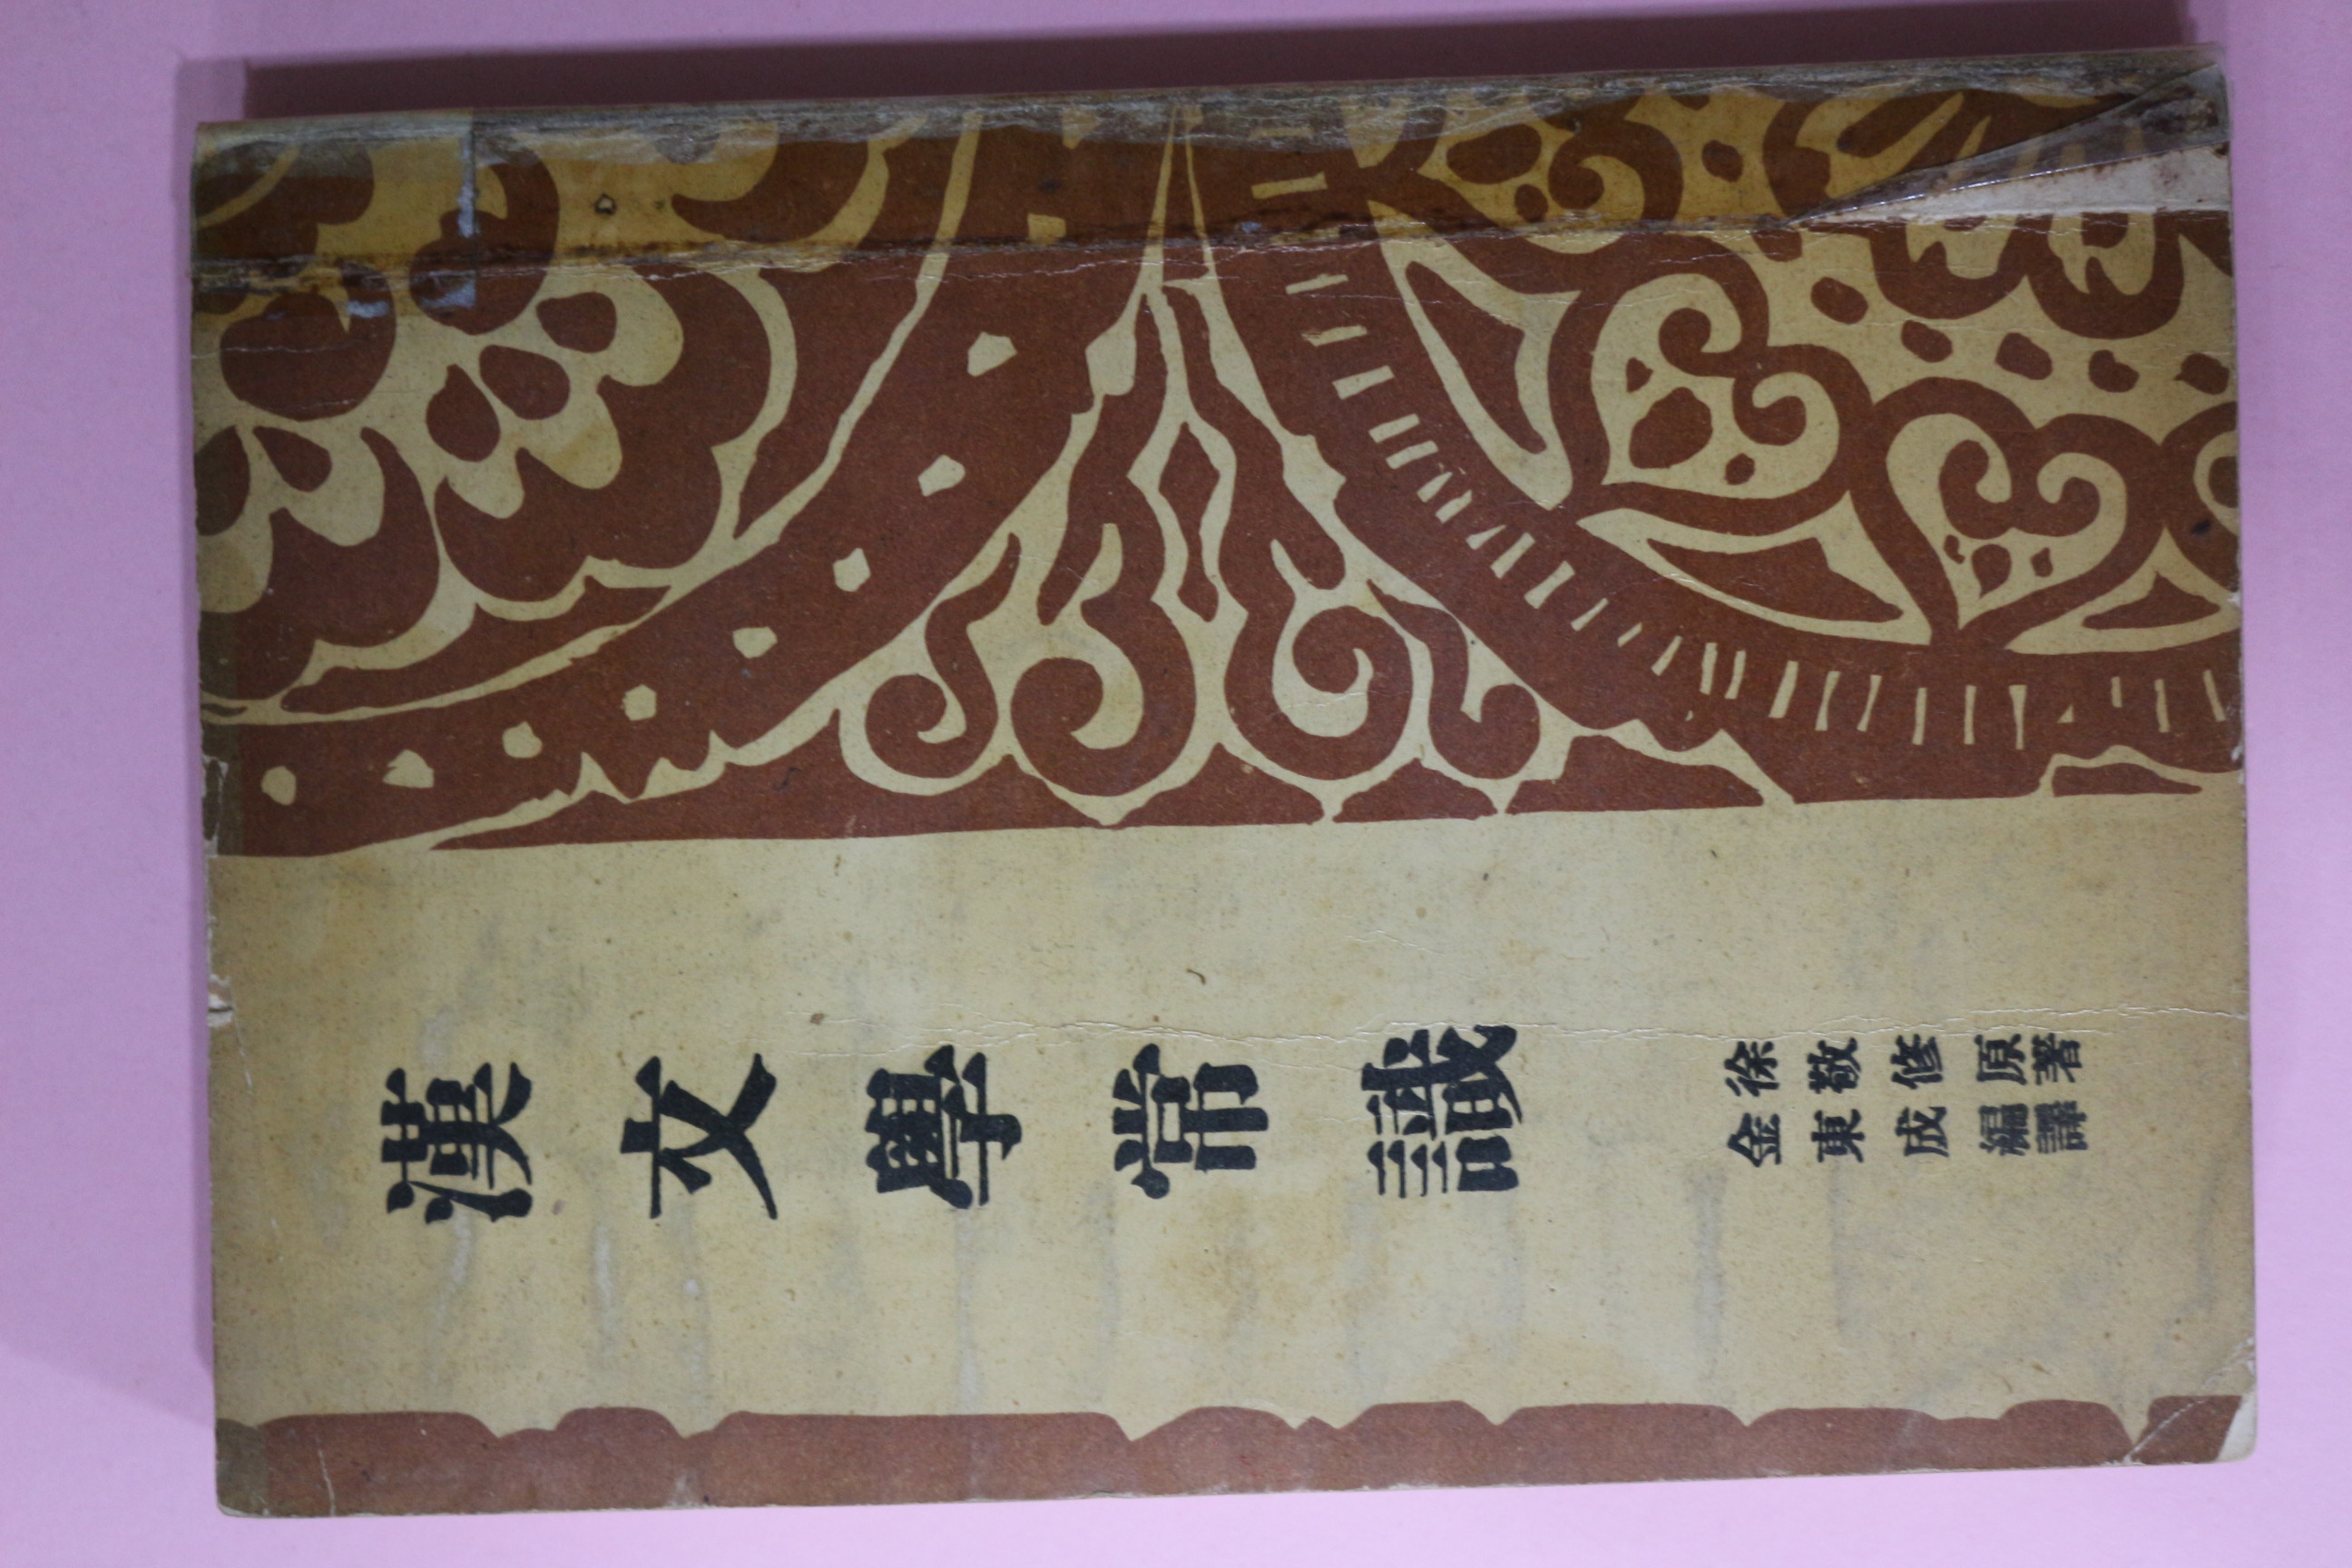 漢文學常識
徐敬修原著
金東成編譯